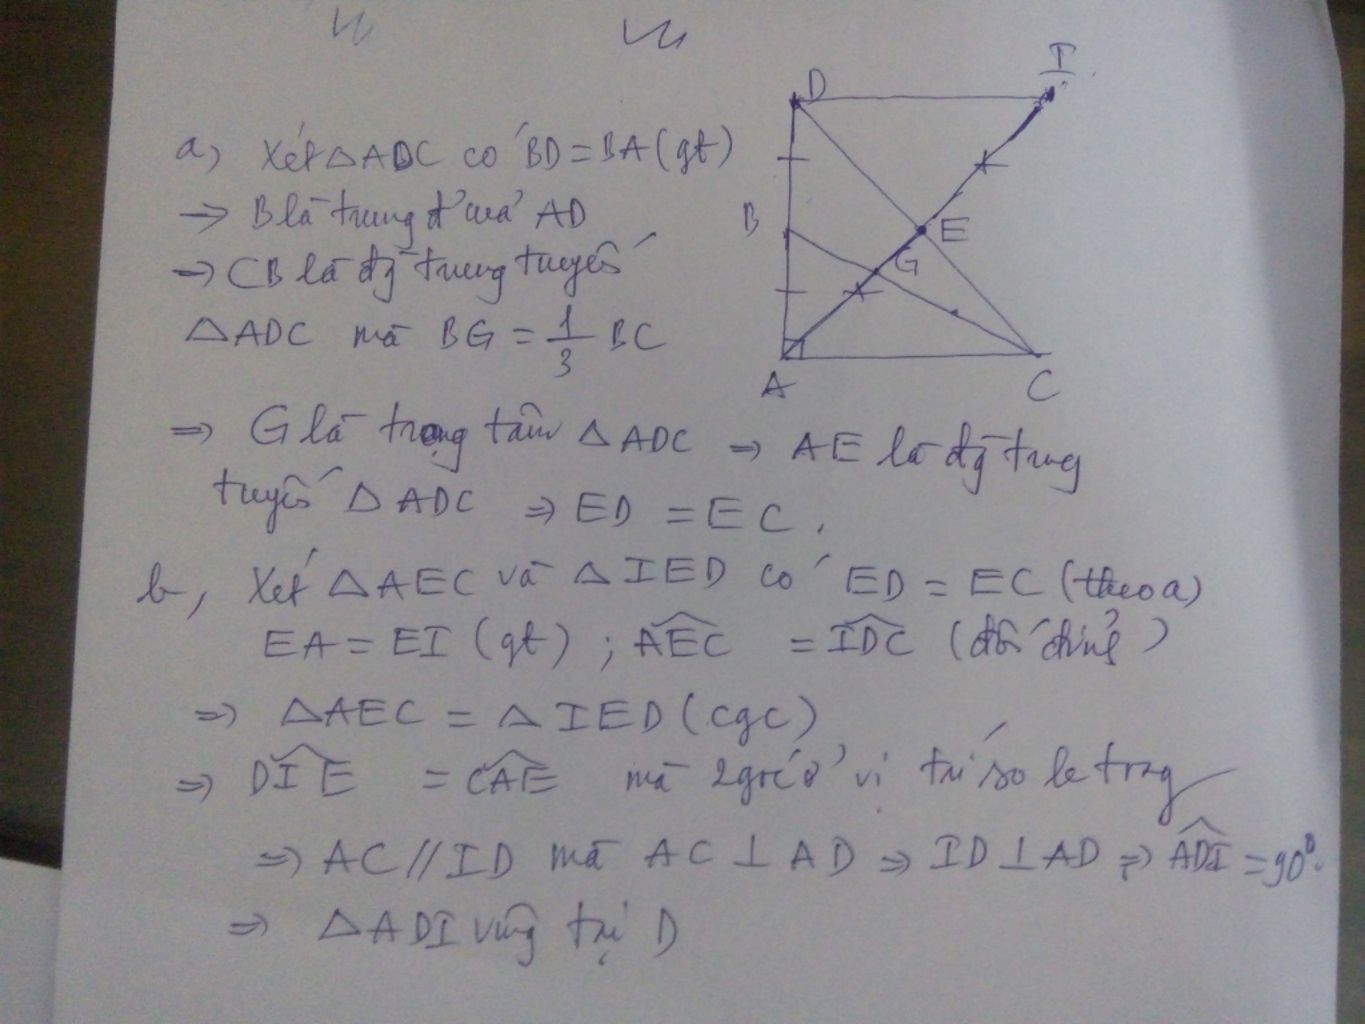 a) Xét △ADC có BD = BA (gt)
→ B là trung đ' của AD
→ CB là đg̀ trung tuyến
△ADC mà BG = 1/3 BC
⇒ G là trọng tâm △ADC ⇒ AE là đg̀ trung
tuyến △ADC ⇒ ED = EC.
b, Xét △AEC và △IED có ED = EC (theo a)
EA = EI (gt) ; \widehat{AEC} = \widehat{IDC} (đối đỉnh)
⇒ △AEC = △IED (cgc)
⇒ \widehat{DIE} = \widehat{CAE} mà 2 góc ở vị trí so le trong
⇒ AC // ID mà AC ⊥ AD ⇒ ID ⊥ AD ⇒ \widehat{ADI} = 90⁰.
⇒ △ADI vuông tại D
D
I
B
E
G
A
C